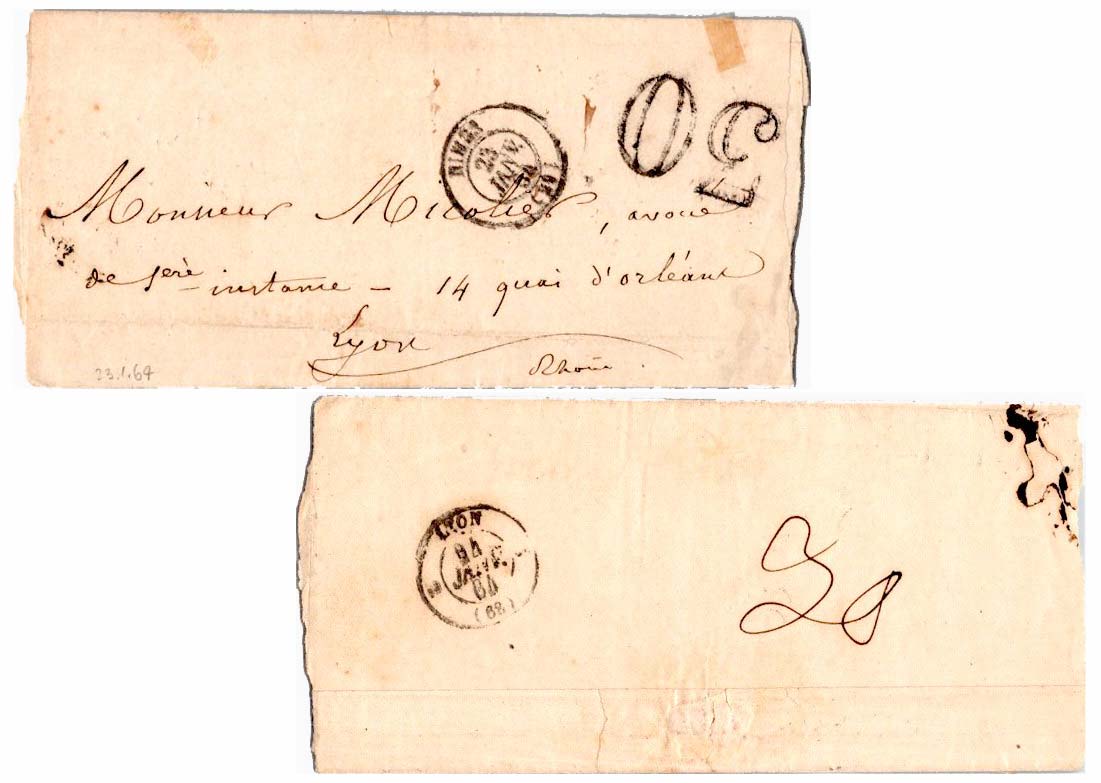 NIMES
23
JANV.
64
30
Monsieur Micolier, avoué
de 1ère instance - 14 quai d'orléans
Lyon
Rhône.
23.1.64
LYON
24
JANV.
64
(68)